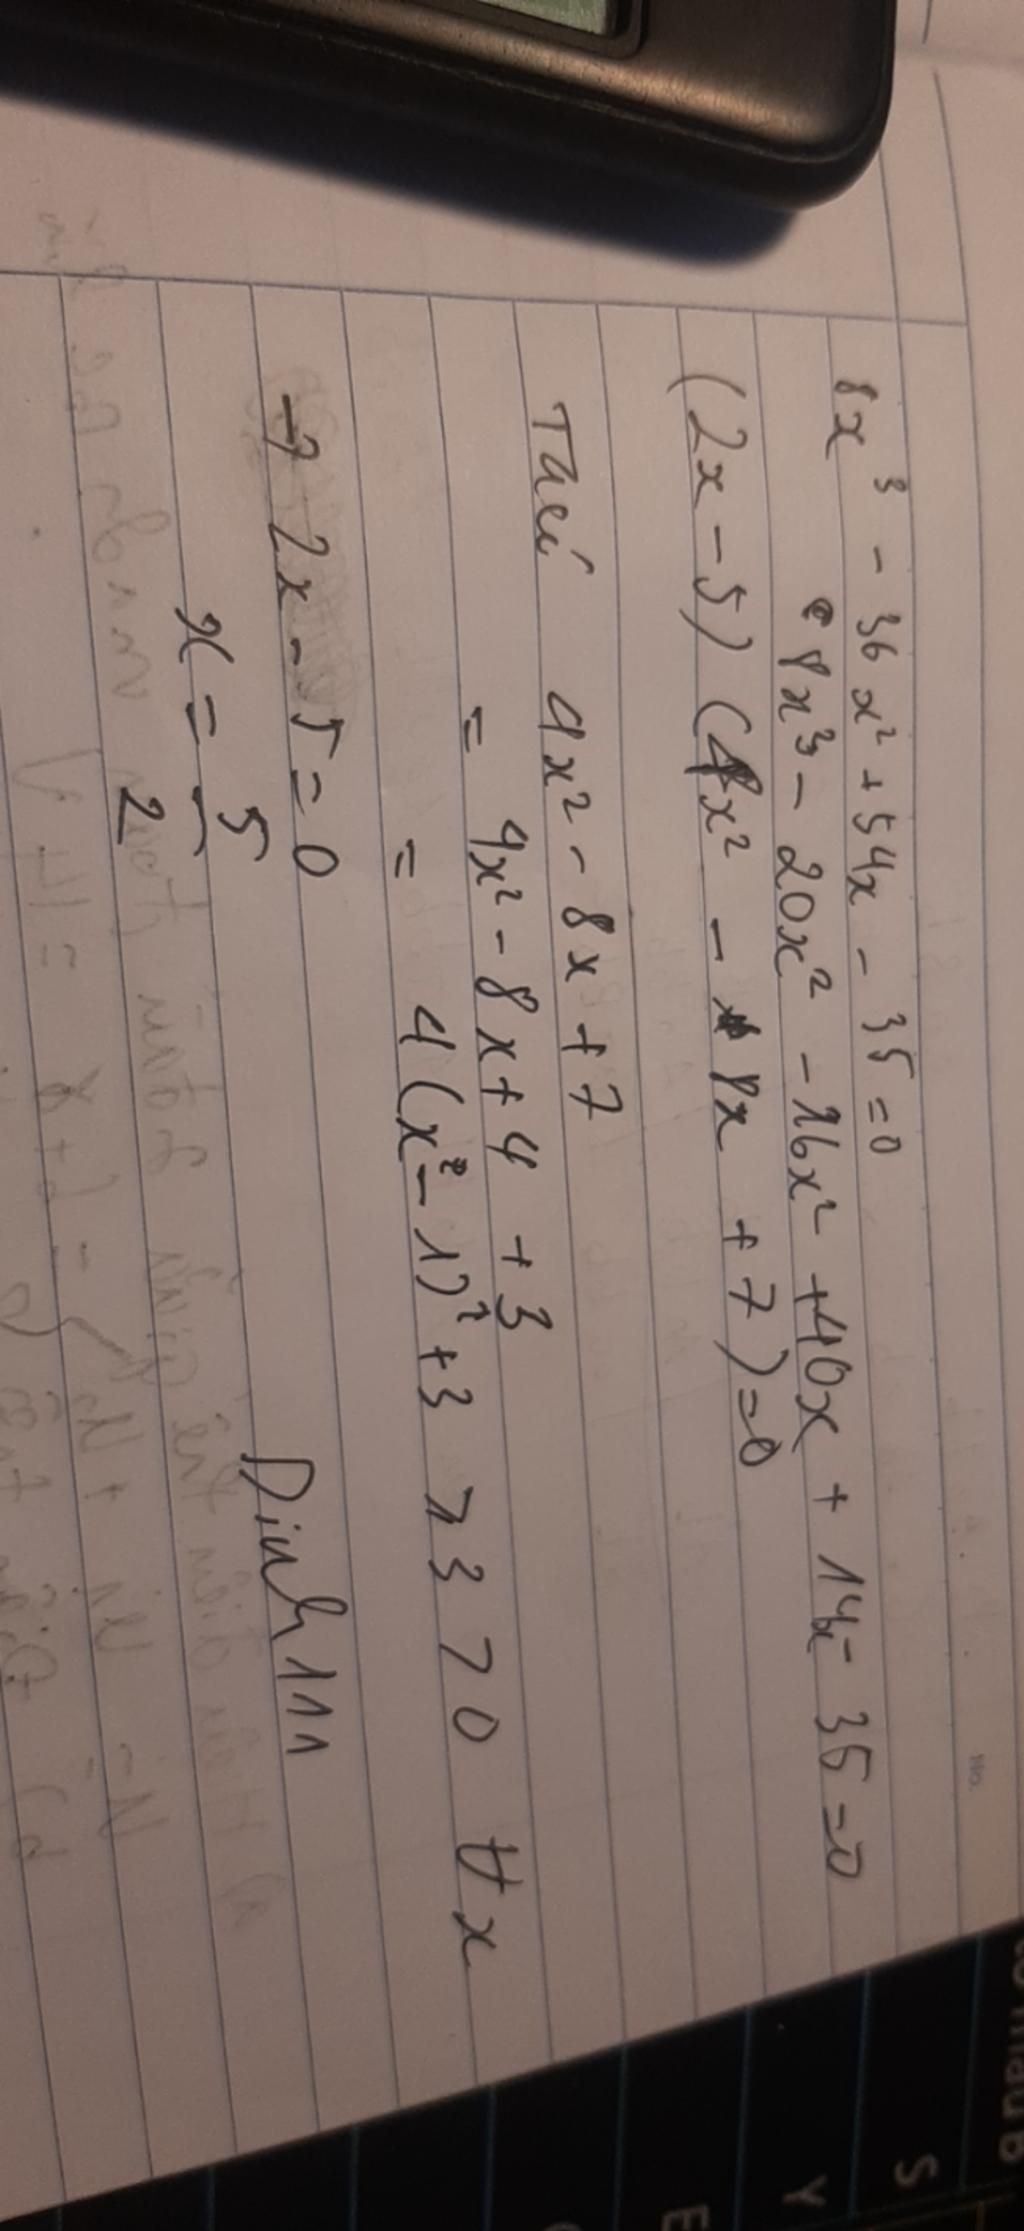 8x³ - 36x² + 54x - 35 = 0
8x³ - 20x² - 16x² + 40x + 14x - 35 = 0
(2x - 5) (4x² - 8x + 7) = 0
4x² - 8x + 7
= 4x² - 8x + 4 + 3
= 4(x² - 1)² + 3 ⩾ 3 > 0 ∀x
→ 2x - 5 = 0
x = 5/2
Dinh111
No.
S
Y
E